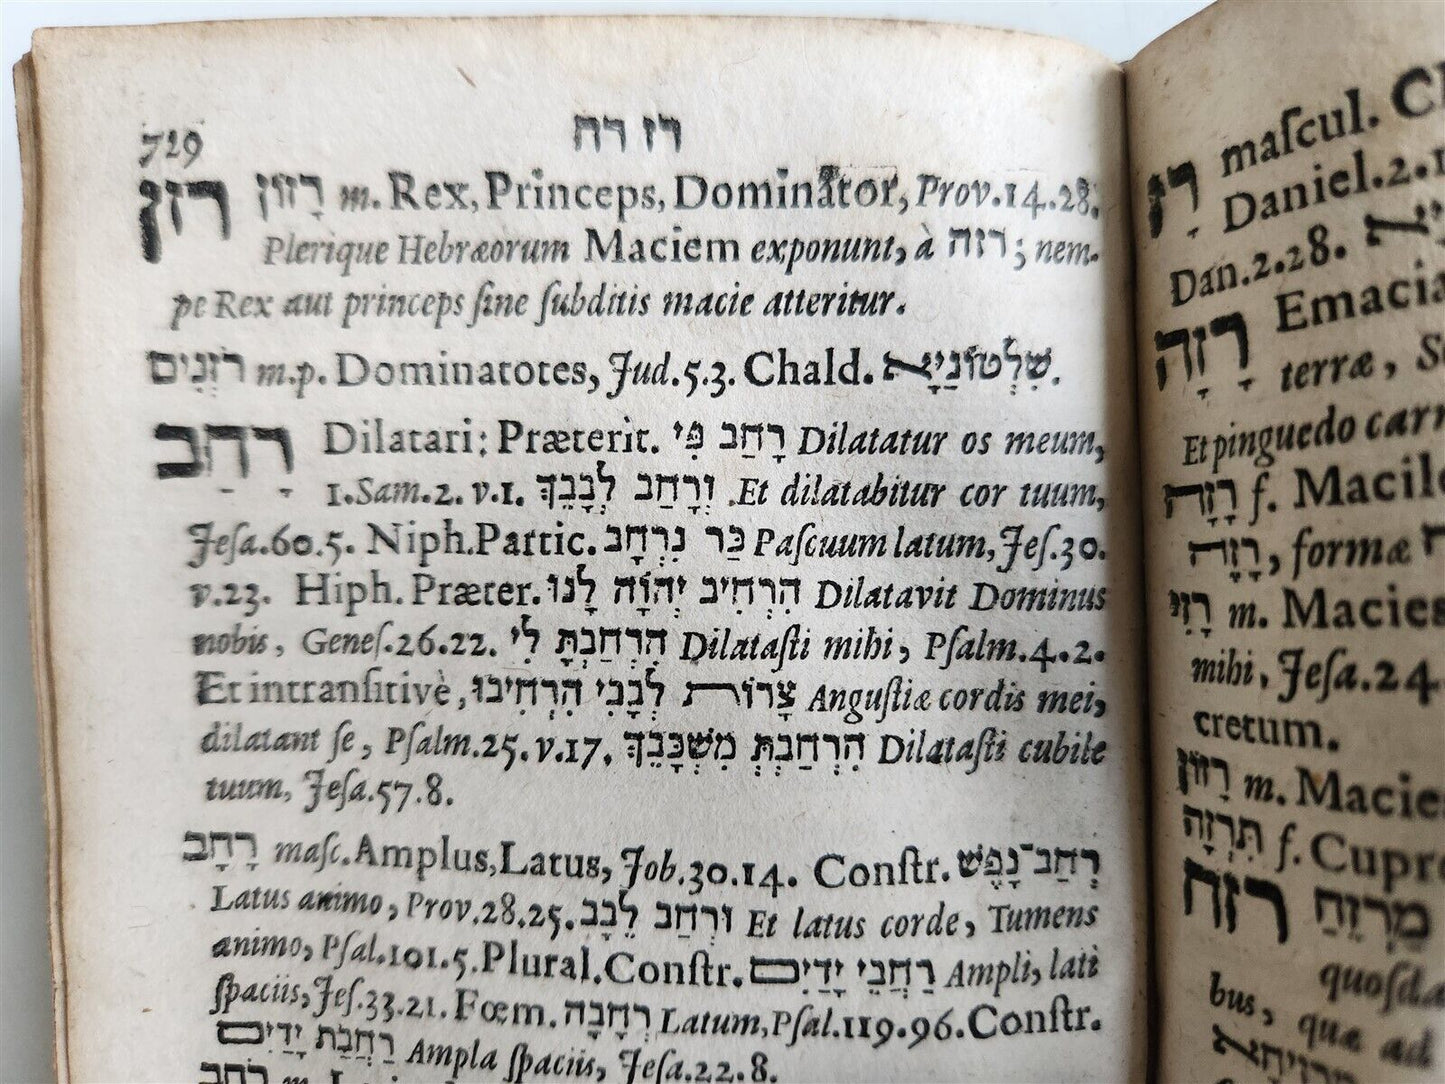 729
רז רח
רזן רָזוֹן m. Rex, Princeps, Dominator, Prov.14.28.
Plerique Hebræorum Maciem exponunt, à רזה; nem-
pe Rex aut princeps ſine ſubditis macie atteritur.
רֹזְנִים m.p. Dominatotes, Jud.5.3. Chald. שִׁלְטוֹנַיָּא.
רָחַב Dilatari: Præterit. רָחַב פִּי Dilatatur os meum,
1.Sam.2. v.1. וְרָחַב לְבָבֵךְ .Et dilatabitur cor tuum,
Jeſa.60.5. Niph.Partic. כַּר נִרְחָב Paſcuum latum, Jeſ.30.
v.23. Hiph. Præter. הִרְחִיב יְהֹוָה לָנוּ Dilatavit Dominus
nobis, Geneſ.26.22. הִרְחַבְתָּ לִּי Dilataſti mihi, Pſalm.4.2.
Et intranſitivè, צָרוֹת לְבָבִי הִרְחִיבוּ Anguſtiæ cordis mei,
dilatant ſe, Pſalm.25.v.17. הִרְחַבְתְּ מִשְׁכָּבֵךְ Dilataſti cubile
tuum, Jeſa.57.8.
רָחָב maſc. Amplus, Latus, Job.30.14. Conſtr. רְחַב־נֶפֶשׁ
Latus animo, Prov.28.25. וּרְחַב לֵבָב Et latus corde, Tumens
animo, Pſal.101.5. Plural. Conſtr. רַחֲבֵי יָדַיִם Ampli, lati
ſpaciis, Jeſ.33.21. Fœm. רְחָבָה Latum, Pſal.119.96. Conſtr.
רַחֲבַת יָדַיִם Ampla ſpaciis, Jeſa.22.8.
maſcul.
רָז Daniel.2.1
Dan.2.28.
רָזָה Emacia
terræ,
Et pinguedo carn
רָזָה f. Macil
רָזָה, formæ
רָזִי m. Macies
mihi, Jeſa.24
cretum.
רָזוֹן m. Macie
תִּרְזָה f. Cupr
רזח מִרְזֵחַ
quoſda
bus, quæ ad